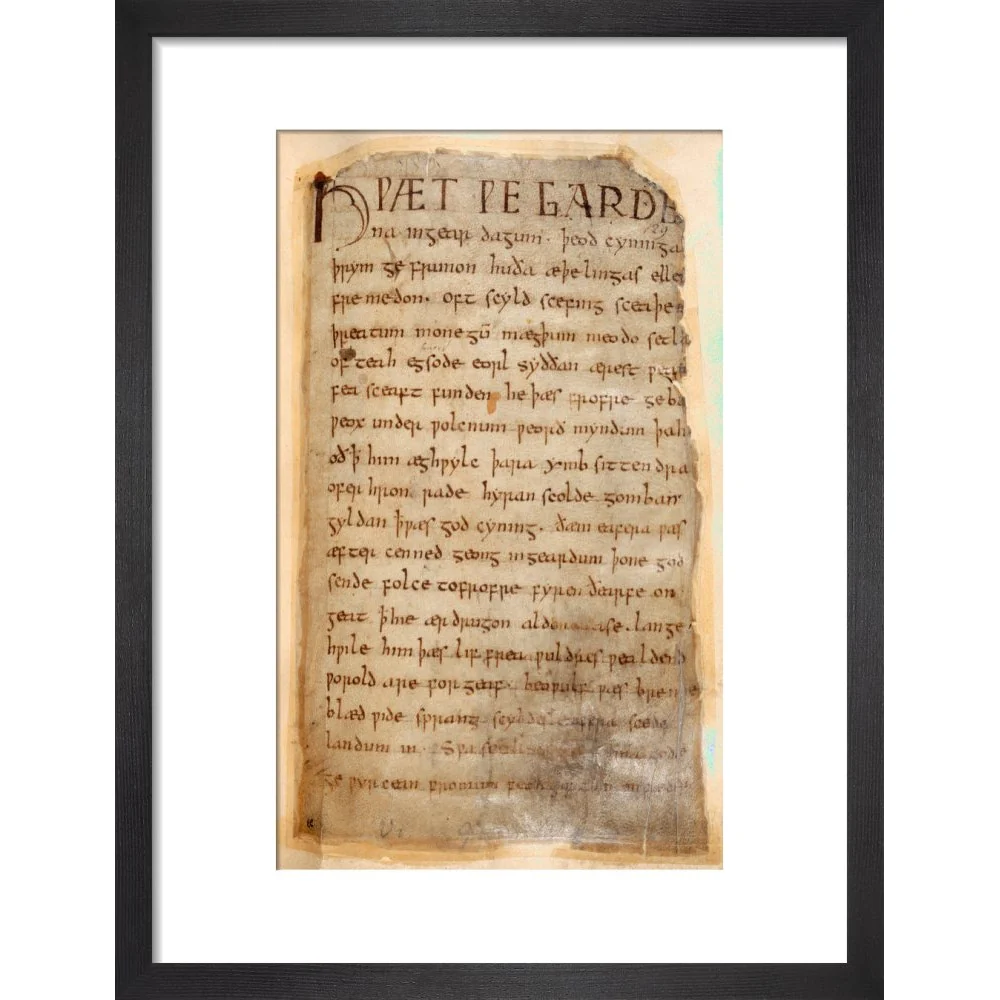 HǷÆT ǷE GARDE
129
na ingear dagum. þeod cyninga
þrym ge frunon huða æþelingas elle
fremedon. oft scyld scefing sceaþe
þreatum monegū mægþum meodo setla
of teah egsode eorl syððan ærest ƿear
fea sceaft funden he þæs frofre geba
ƿeox under ƿolcnum ƿeorð myndum þah
oðꝥ him æghƿylc þara ymb sittendra
ofer hron rade hyran scolde gomban
gyldan ꝥƿæs god cyning. ðæm eafera ƿæs
æfter cenned geong ingeardum þone god
sende folce tofrofre fyren ðearfe on
geat ꝥhie ær drugon aldor ase. lange
hƿile him þæs lif frea ƿuldres ƿealdend
ƿorold are for geaf. beoƿulf ƿæs breme
blæd ƿide sprang scyldes eafera scede
landum in. Sƿa guma gode
ge ƿyrcean fromum feoh